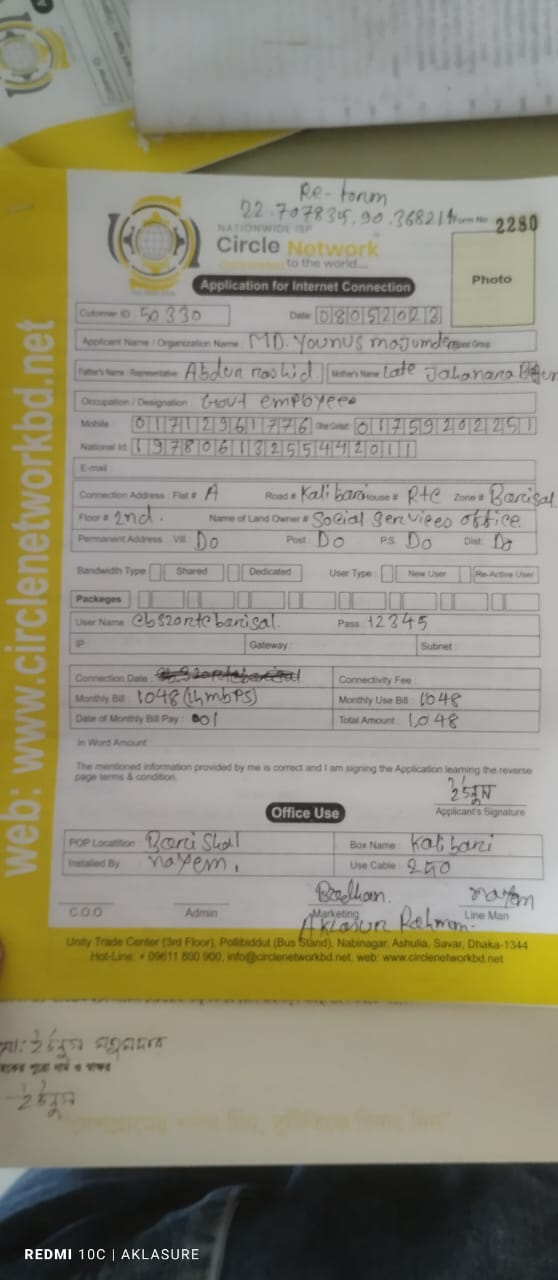 Re-form
22.707835,90.368214 Form No 2280
NATIONWIDE ISP
Circle Network
Connected to the world....
Application for Internet Connection
Photo
Cutomer ID : 50330 Date : 08052023
Applicant Name / Organization Name : MD. Younus majumder
Father's Name / Representative Abdur rashid Mother's Name Late Jahanara
Occupation / Designation : Govt employee
Mobile : 01712961776 01759202251
National Id : 19780613255442011
E-mail :
Connection Address : Flat # A Road # Kalibari House # Rtc Zone # Barisal
Floor # 2nd. Name of Land Owner # Social Services office
Permanent Address : Vill Do Post : Do P.S. Do Dist: Do
Bandwidth Type Shared Dedicated User Type : New User Re-Active User
Packeges
User Name cbs20rtcbarisal. Pass 12345
IP Gateway : Subnet :
Connection Date : Connectivity Fee :
Monthly Bill : 1048 (14mbps) Monthly Use Bill : 1048
Date of Monthly Bill Pay : 01 Total Amount : 1048
In Word Amount :
The mentioned information provided by me is correct and I am signing the Application learning the reverse
page terms & condition.
ইউনুস
Applicant's Signature
Office Use
POP Locatition Barishal Box Name : Kalibari
Installed By nayem. Use Cable : 250
nayem
C.O.O Admin Marketing Line Man
Aklasur Rahman
Unity Trade Center (3rd Floor), Pollibiddut (Bus Stand), Nabinagar, Ashulia, Savar, Dhaka-1344
Hot-Line: + 09611 800 900, info@circlenetworkbd.net, web: www.circlenetworkbd.net
web: www.circlenetworkbd.net
মো: ইউনুস মজুমদার
পুরো নাম ও স্বাক্ষর
ইউনুস
REDMI 10C | AKLASURE